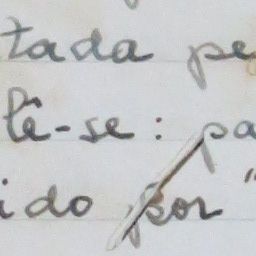 tada pe
lê-se: pa
ido por "